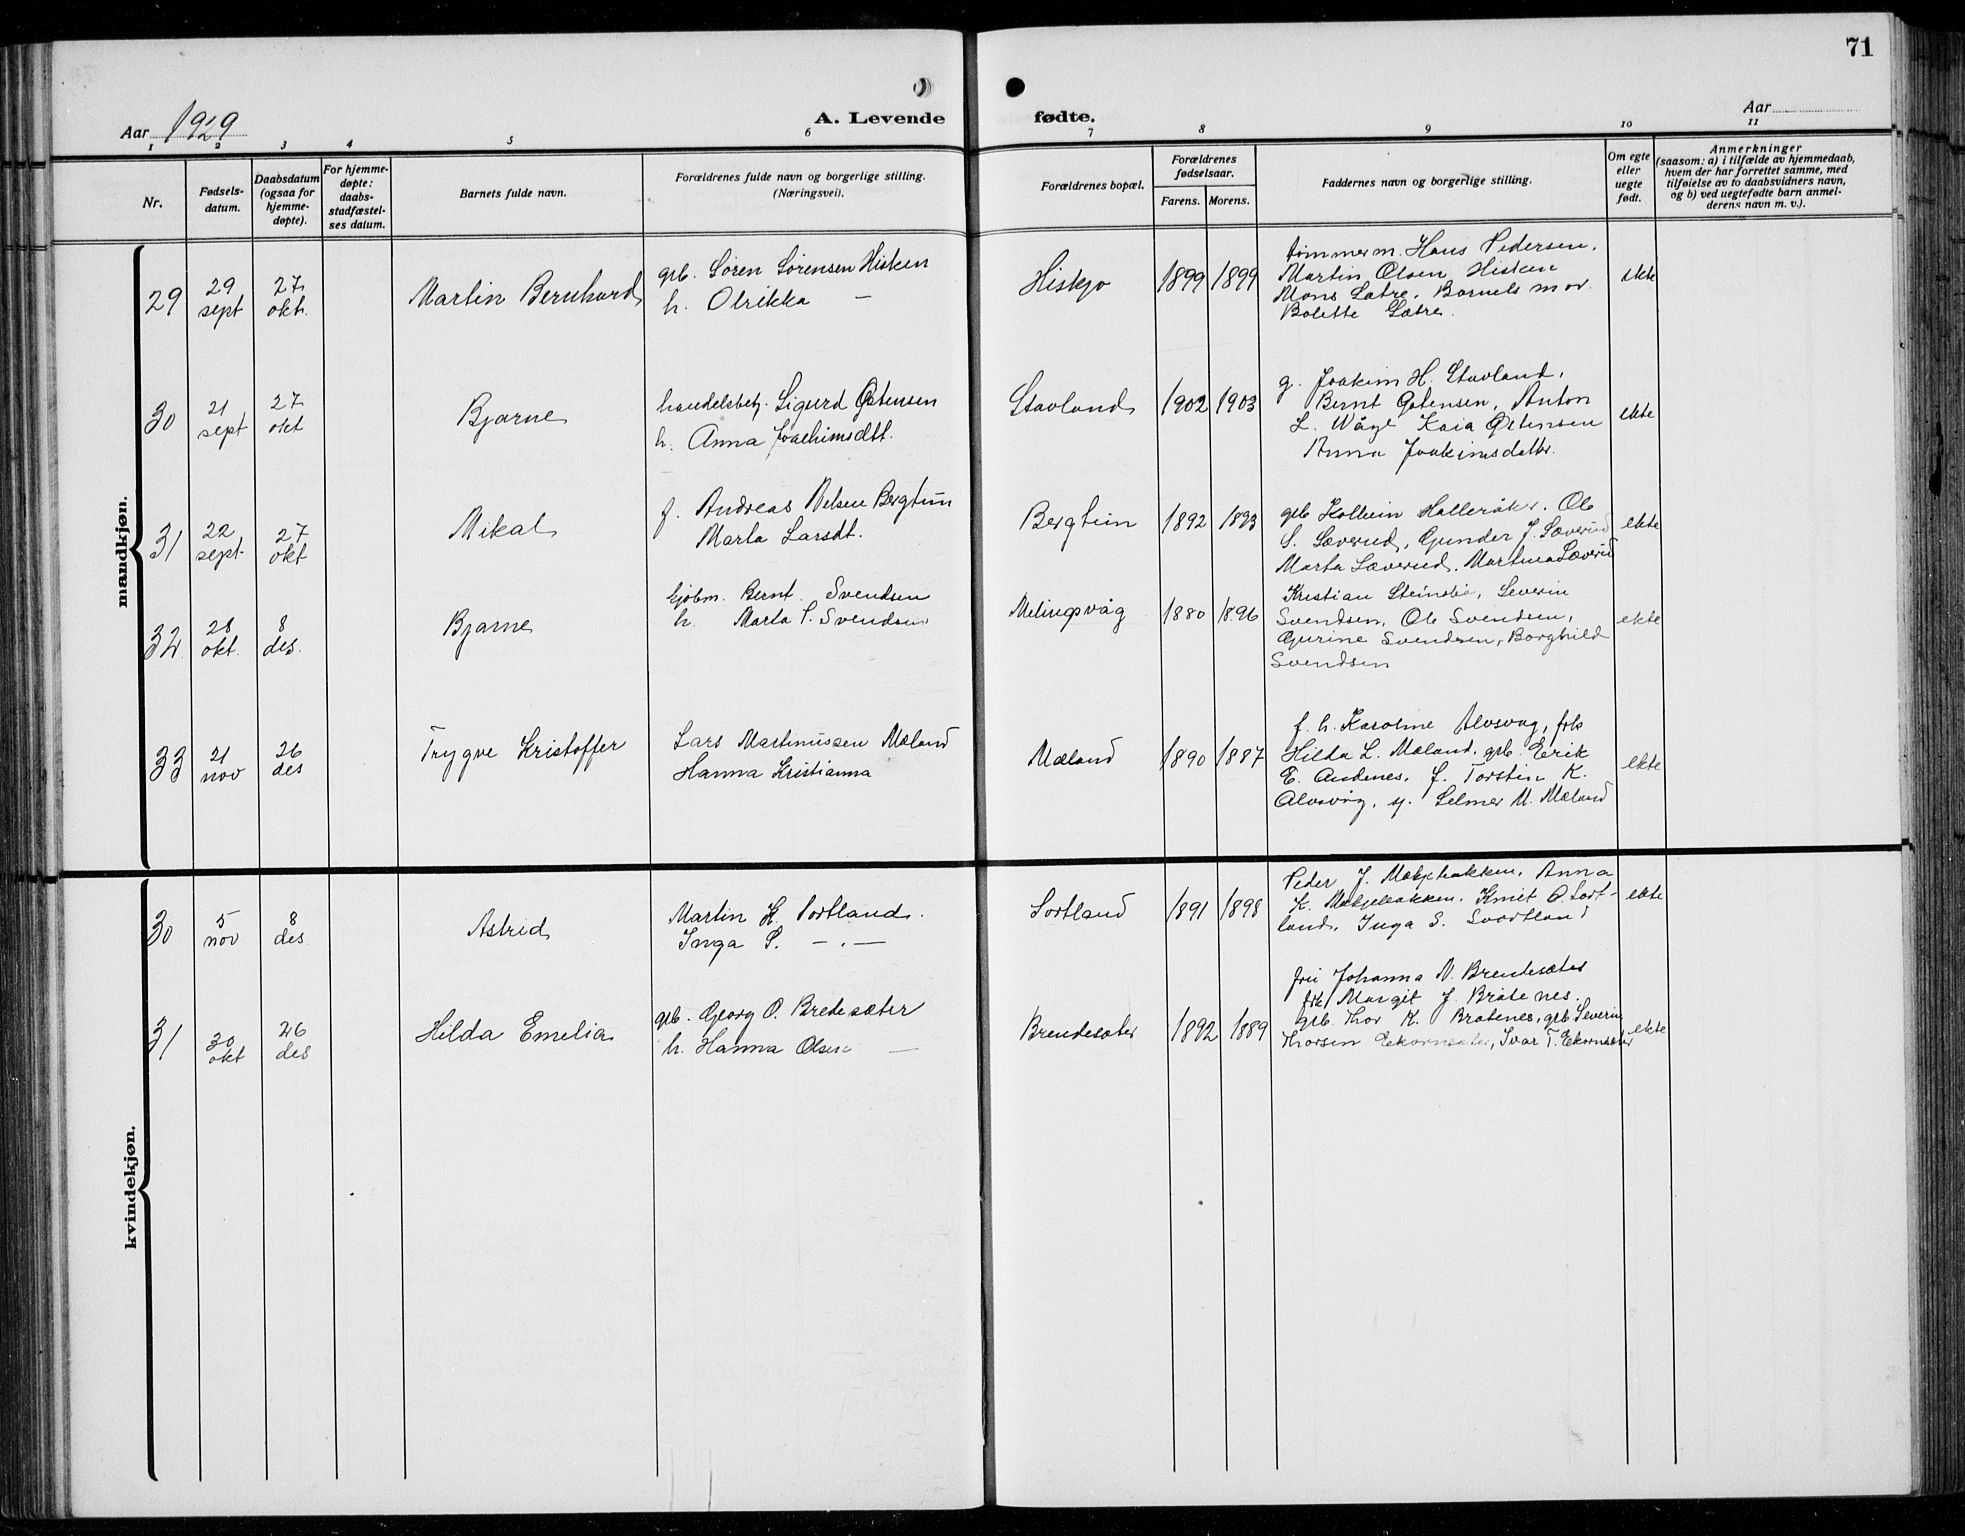 71
Aar 1929
A. Levende
fødte.
Aar
1 2 3 4 5 6 7 8 9 10 11
Nr.
Fødsels-
datum.
Daabsdatum
(ogsaa for
hjemme-
døpte).
For hjemme-
døpte:
daabs-
stadfæstel-
ses datum.
Barnets fulde navn.
Forældrenes fulde navn og borgerlige stilling.
(Næringsvei).
Forældrenes bopæl.
Forældrenes
fødselsaar.
Farens. Morens.
Faddernes navn og borgerlige stilling.
Om egte
eller
uegte
født.
Anmerkninger
(saasom: a) i tilfælde av hjemmedaab,
hvem der har forrettet samme, med
tilføielse av to daabsvidners navn,
og b) ved uegtefødte barn anmel-
derens navn m. v.).
mandkjøn.
29
29
sept
27
okt.
Martin Bernhard
grb. Søren Sørensen Hisken
h. Olrikka —
Hiskjo
1899 1899
tømmerm. Hans Pedersen.
Martin Olsen Hisken
Mons Sætre. Barnets mor.
Bolette Sætre.
ekte
30
21
sept
27
okt
Bjarne
handelsbetj. Sigurd Østensen
h. Anna Joachimsdtt.
Stavland
1902 1903
g. Joakim H. Stavland,
Bernt Østensen, Anton
L. Våge Kaia Østensen
Anna Joakimsdatter.
ekte
31
22
sept.
27
okt
Mikal
f. Andreas Nelsen Bergtun
Marta Larsdt.
Bergtun
1892 1893
grb Kolbein Halleråker. Ole
S. Sæverud, Gunder J. Sæverud
Marta Sæverud. Martina Sæverud
ekte
32
28
okt.
8
des.
Bjarne
kjøbm. Bernt. Svendsen
h. Marta S. Svendsen
Melingsvåg
1880 1896
Kristian Steinsbø, Severin
Svendsen, Ole Svendsen,
Gurine Svendsen, Borghild
Svendsen
ekte
33
21
nov
26
des
Trygve Kristoffer
Lars Martinussen Mæland
Hanna Kristianna
Mæland
1890 1887
f. h. Karoline Alvsvåg, frk
Hilda L. Mæland, grb. Erik
E. Andenes. f. Torstin K.
Alvsvåg, g. Selmer M. Mæland
ekte
kvindekjøn.
30
5
nov
8
des
Astrid
Martin K. Sortland.
Inga S. — . —
Sortland
1891 1898
Peder J. Mækjebakken. Anna
K. Mækjebakken. Knut O. Sort-
land, Inga S. Svortland
ekte
31
30
okt
26
des
Hilda Emelia
grb. Georg O. Bredesæter
h. Hanna Olsen —
Brendesæter
1892 1889
fru Johanna N. Brendesæter
frk Margit J. Bråtenes.
grb. Thor K. Bråtenes, grb Severin
Thorsen Ekornsæter, Ivar T. Ekornsæter
ekte